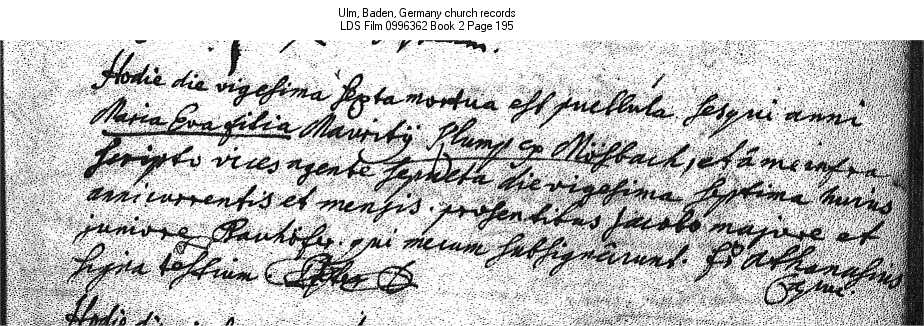 Ulm, Baden, Germany church records
LDS Film 0996362 Book 2 Page 195
Hodie die vigesima sexta mortua est puellula sesqui anni
Maria Eva filia Mauritij Plump ex Mösbach, et â me infra
scripto vices agente sepulta die vigesima septima huius
anni currentis et mensis. praesentibus Jacobo majore et
juniore Rauhöfer. qui mecum subsignârunt. fr Athanasius
signa testium
Hodie